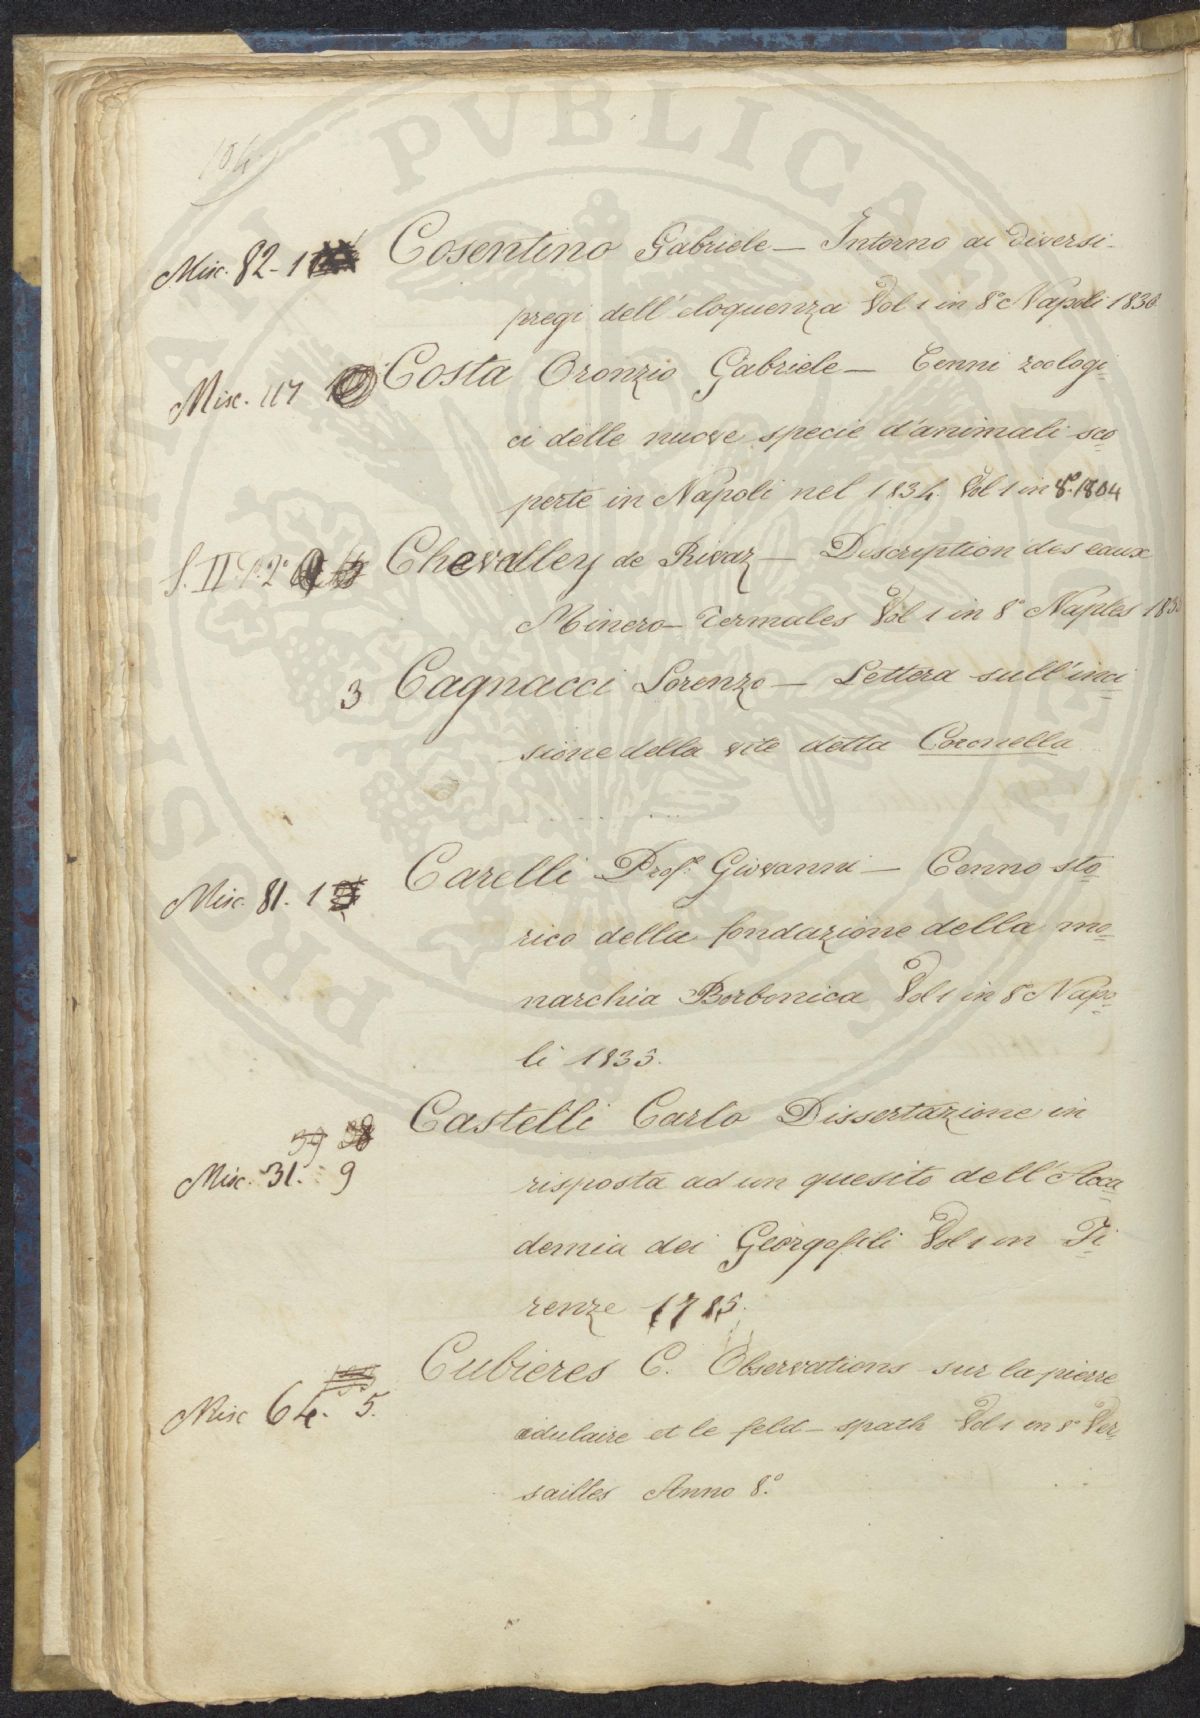 104
Misc. 82-1 Cosentino Gabriele — Intorno ai diversi
pregi dell'eloquenza Vol 1 in 8° Napoli 1830
Misc. 117 Costa Oronzio Gabriele — Cenni zoologi-
ci delle nuove specie d'animali sco-
perte in Napoli nel 1834. Vol 1 in 8° 1834
S. II P. 2° Chevalley de Rivaz — Description des eaux
Minero-Termales Vol 1 in 8° Naples 183
3 Cagnacci Lorenzo — Lettera sull'inci-
sione della vite detta Coronella
Misc. 81. 1 Carelli Prof. Giovanni — Cenno sto-
rico della fondazione della mo-
narchia Borbonica Vol 1 in 8° Napo-
li 1835.
Castelli Carlo Dissertazione in
Misc. 31. 9 risposta ad un quesito dell'Acca-
demia dei Georgofili Vol 1 in Fi-
renze 1785.
Cubieres C. Observations sur la pierre
Misc 64. 5. adulaire et le feld-spath Vol 1 in 8° Ver-
sailles Anno 8°.
PVBLICAE